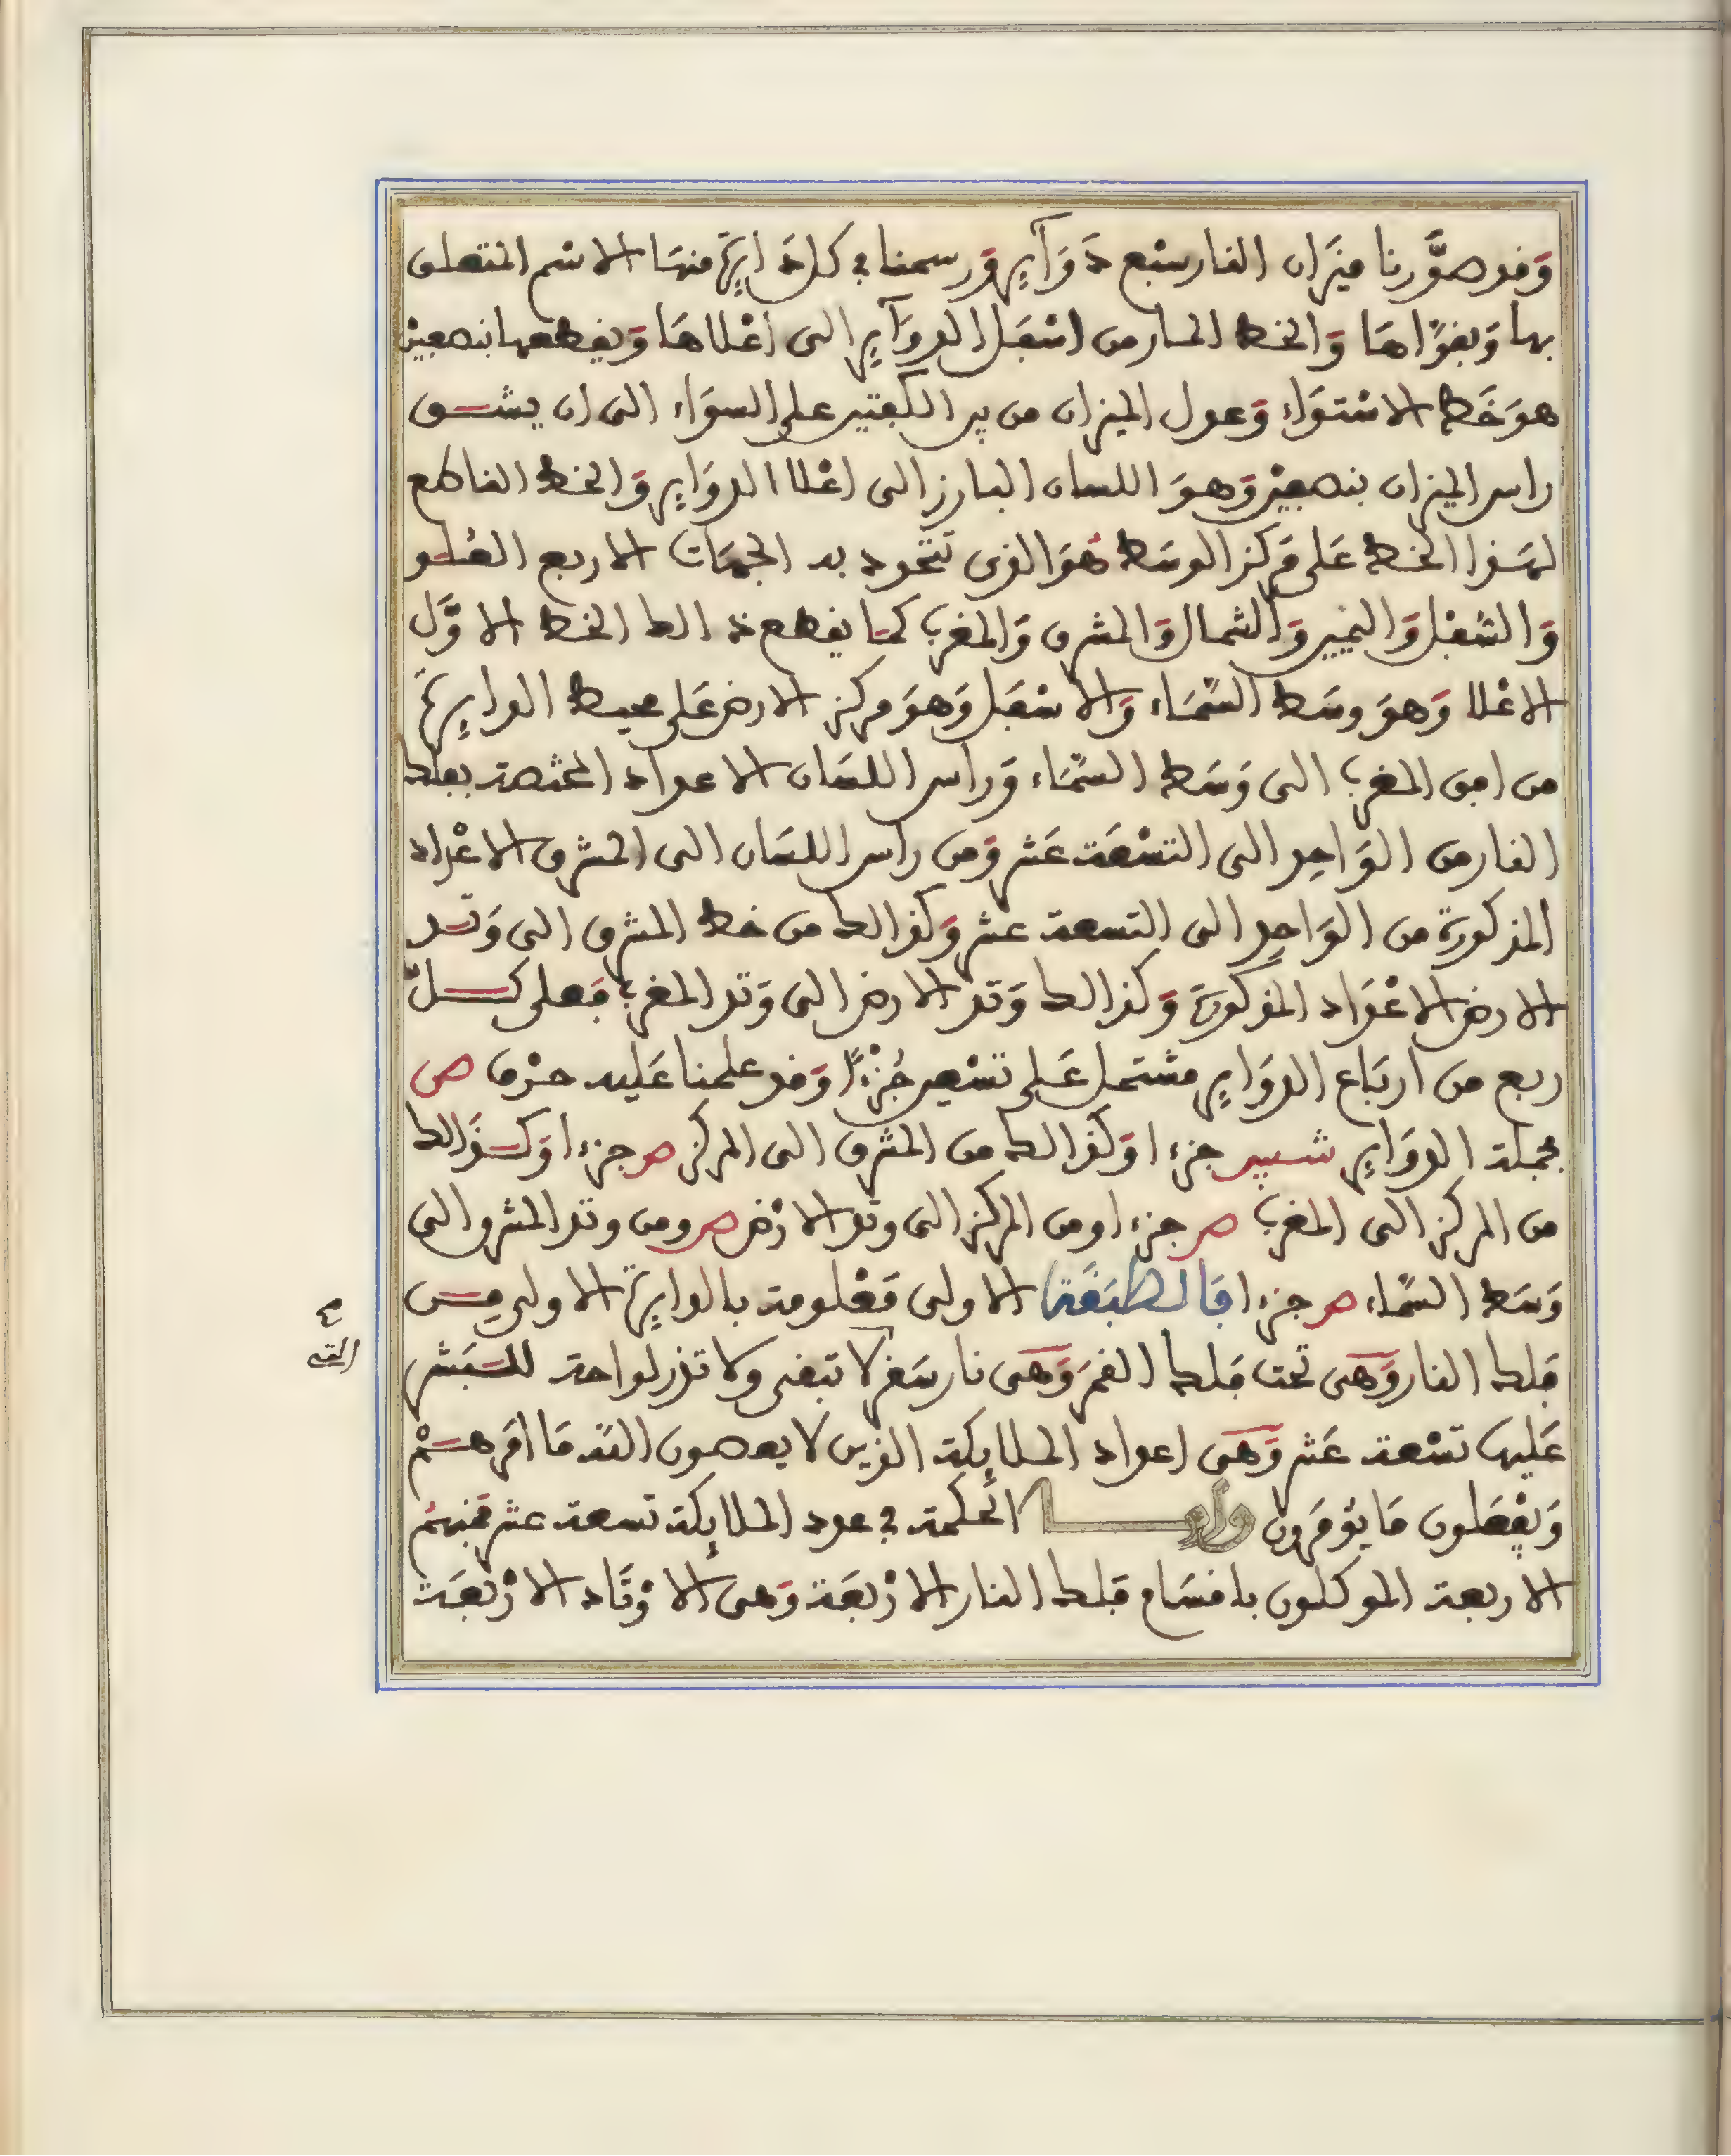 وَقد صوَّرنا ميزَان النار سبْع دَوَآيِر وَرسمنا في كل دَايِرَة منهَا الاسْم المتعلق
بها وَبقوَّاهَا وَالخط المار من اسْفَل الدوَآيِر الى اعْلاهَا وَيقطعها بنصفين
هوَ خَط الاسْتوَاء وَعمود الميزان من بين الكفتين على السوَاء الى ان يشق
راس الميزان بنصفين وَهوَ اللسان البارز الى اعْلا الدوَاير وَالخط القاطع
لهَذا الخط عَلى مَركز الوسَط هُوَ الذى تتحدد به الجهَات الاربع العُلو
وَالسُفل وَاليَمين وَالشمال وَالمشرق وَالمغرب كمَا يقطع ذالك الخط الاوَّل
الاعْلا وَهوَ وسَط السَّمَاء وَالاسْفَل وَهوَ مركز الارض عَلى محيط الدايِرَة
من افق المغرب الى وَسَط السَّمَاء وَراس اللسَان الاعداد المختصة بفلك
النار من الوَاحِد الى التسْعَة عَشر وَمن راس اللسَان الى المشرق الاعْدَاد
المذكورة من الوَاحِد الى التسعة عشر وَكذالك من خط المشرق الى وَتد
الارض الاعْدَاد المذكورَة وَكذالك وَتد الارض الى وَتد المغرب فعلى كل
ربع من ارْبَاع الدوَاير مشتمل عَلى تسْعين جُزْءًا وَقد علمنا عَليه حرْف ص
فجملة الدوَاير شسين جزءا وَكذالك من المشرق الى المركز ص جزءا وَكذَالك
من المركز الى المغرب ص جزءا ومن المركز الى وتد الارْض ص ومن وتد المشرق الى
وَسَط السَّمَاء ص جزءا فَالطبَقَة الاولى مَعْلومة بالدايِرَة الاولى من
فلك النار وَهى تحت فلك القمَر وَهى نار سَقر لا تبقى ولا تذر لواحة للبَشر
عَليها تسْعة عَشر وَهى اعداد الملايكة الذين لا يعصون الله مَا امَرهمْ
وَيفْعَلون مَا يؤمَرون وَاما الحكمة في عدد الملايكة تسعة عشر فمنهُم
الاربعة الموكلون باقسَام فلك النار الارْبَعَة وَهى الاوْتَاد الارْبَعَة